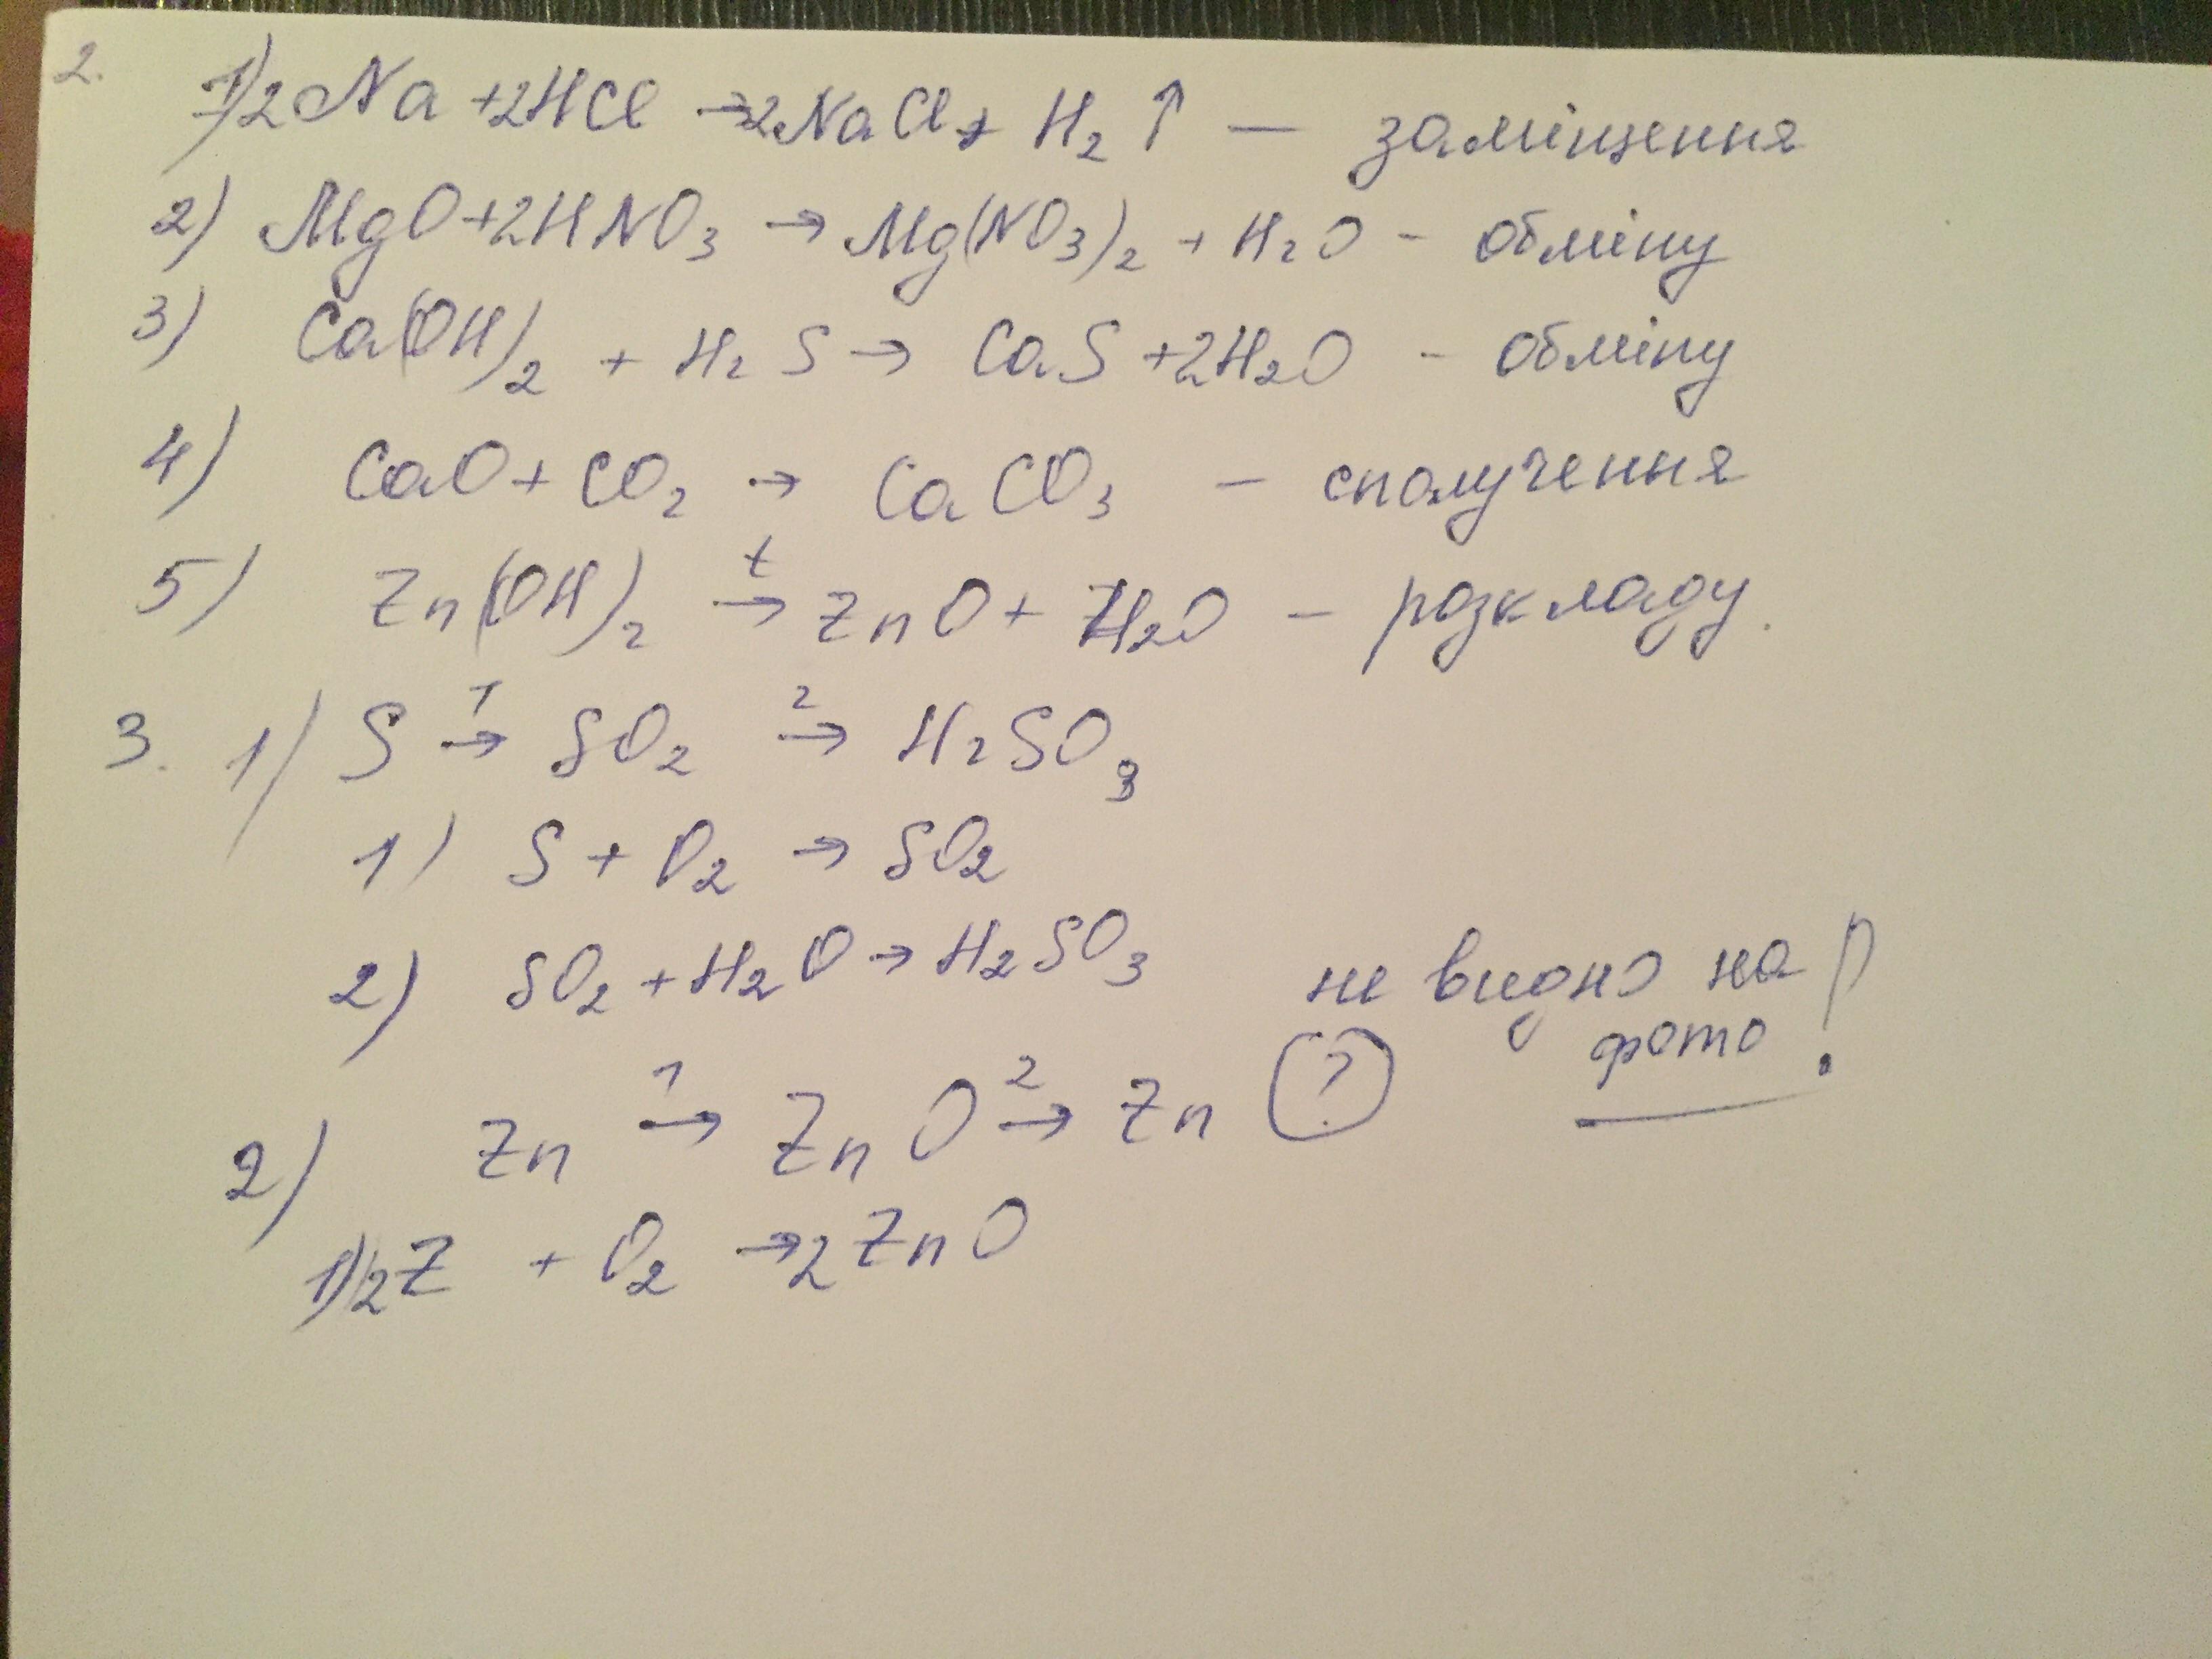 2. 1) 2Na + 2HCl → 2NaCl + H₂ ↑ — заміщення
2) MgO + 2HNO₃ → Mg(NO₃)₂ + H₂O - обміну
3) Ca(OH)₂ + H₂S → CaS + 2H₂O - обміну
4) CaO + CO₂ → CaCO₃ - сполучення
5) Zn(OH)₂ →ᵗ ZnO + H₂O - розкладу.
3. 1) S →¹ SO₂ →² H₂SO₃
1) S + O₂ → SO₂
2) SO₂ + H₂O → H₂SO₃
не видно на фото!
2) Zn →¹ ZnO →² Zn (?)
1) 2Z + O₂ → 2ZnO